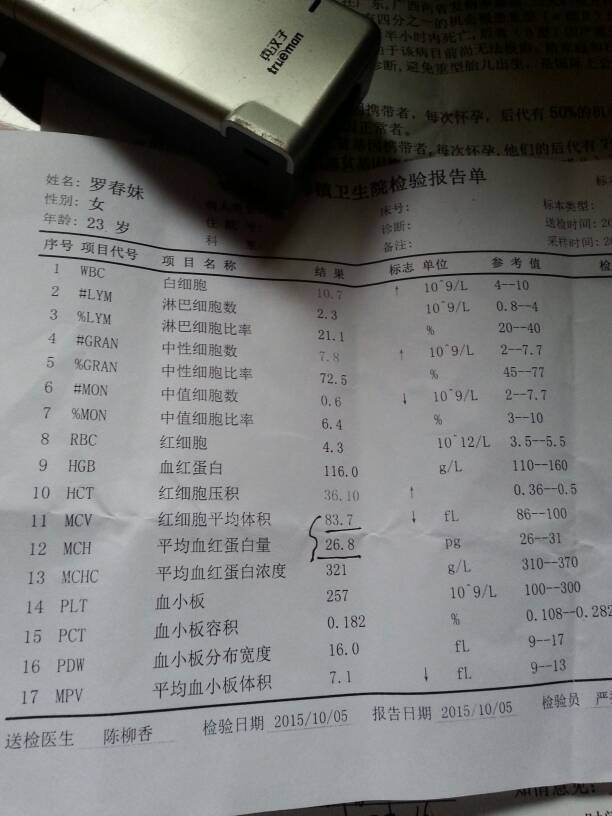 英汉子
trueman
半小时内死亡
于该病目前尚无法根
诊断,避免重型胎儿出生
因携带者，每次怀孕，后代有50%的机
正常者。
基因携带者,每次怀孕,他们的后代有
镇卫生院检验报告单
姓名: 罗春妹
性别: 女 床号: 标本类型:
年龄: 23 岁 科 诊断: 送检时间:
备注: 采样时间:
序号 项目代号 项 目 名 称 结 果 标志 单位 参 考 值 检
1 WBC 白细胞 10.7 ↑ 10^9/L 4--10
2 #LYM 淋巴细胞数 2.3 10^9/L 0.8--4
3 %LYM 淋巴细胞比率 21.1 % 20--40
4 #GRAN 中性细胞数 7.8 ↑ 10^9/L 2--7.7
5 %GRAN 中性细胞比率 72.5 % 45--77
6 #MON 中值细胞数 0.6 ↓ 10^9/L 2--7.7
7 %MON 中值细胞比率 6.4 % 3--10
8 RBC 红细胞 4.3 10^12/L 3.5--5.5
9 HGB 血红蛋白 116.0 g/L 110--160
10 HCT 红细胞压积 36.10 ↑ 0.36--0.5
11 MCV 红细胞平均体积 83.7 ↓ fL 86--100
12 MCH 平均血红蛋白量 26.8 pg 26--31
13 MCHC 平均血红蛋白浓度 321 g/L 310--370
14 PLT 血小板 257 10^9/L 100--300
15 PCT 血小板容积 0.182 % 0.108--0.282
16 PDW 血小板分布宽度 16.0 fL 9--17
17 MPV 平均血小板体积 7.1 ↓ fL 9--13
送检医生 陈柳香 检验日期 2015/10/05 报告日期 2015/10/05 检验员 严